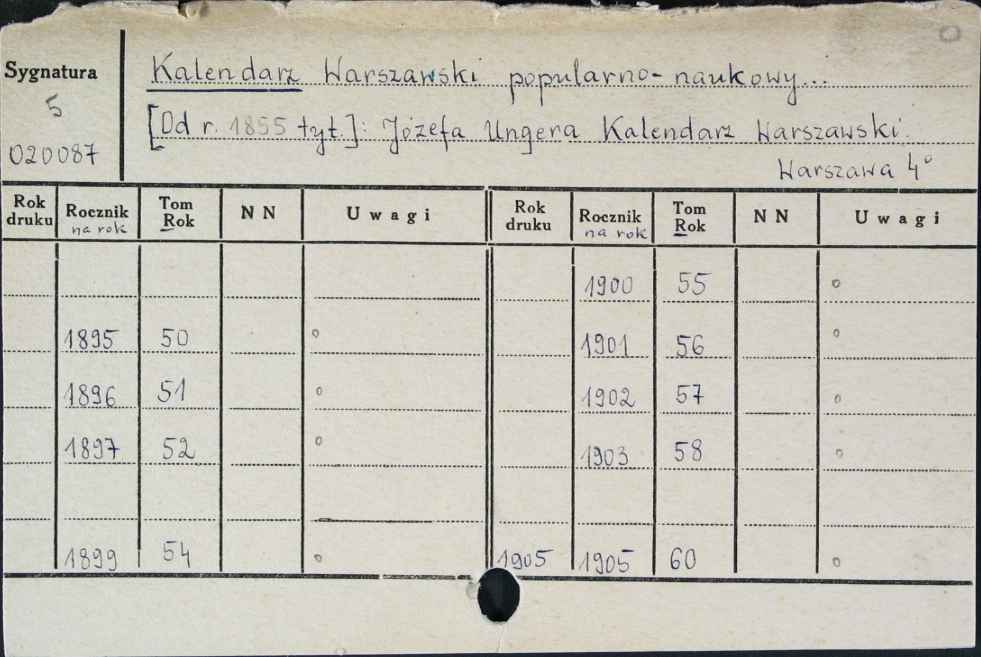 Sygnatura
5
020087
Kalendarz Warszawski popularno-naukowy...
[Od r. 1855 tyt.]: Józefa Ungera Kalendarz Warszawski.
Warszawa 4°
Rok druku Rocznik na rok Tom Rok NN Uwagi Rok druku Rocznik na rok Tom Rok NN Uwagi
1900 55 o
1895 50 o 1901 56 o
1896 51 o 1902 57 o
1897 52 o 1903 58 o
1899 54 o 1905 1905 60 o